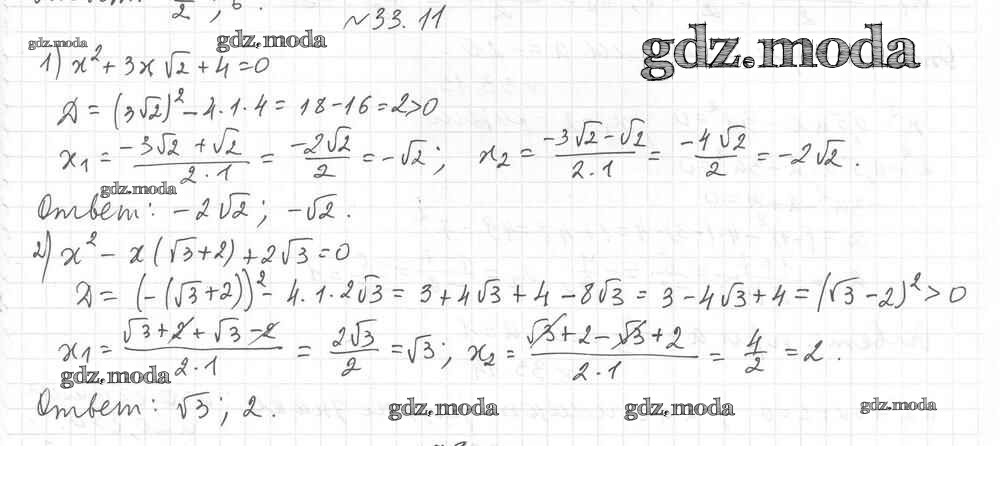 2 ; 6.
№33.11
gdz.moda
gdz.moda
gdz.moda
1) x² + 3x√2 + 4 = 0
D = (3√2)² - 4·1·4 = 18 - 16 = 2 > 0
x₁ = (-3√2 + √2)/(2·1) = (-2√2)/2 = -√2; x₂ = (-3√2 - √2)/(2·1) = (-4√2)/2 = -2√2.
gdz.moda
Ответ: -2√2; -√2.
2) x² - x(√3+2) + 2√3 = 0
D = (-(√3+2))² - 4·1·2√3 = 3 + 4√3 + 4 - 8√3 = 3 - 4√3 + 4 = (√3 - 2)² > 0
x₁ = (√3 + 2 + √3 - 2)/(2·1) = 2√3/2 = √3; x₂ = (√3 + 2 - √3 + 2)/(2·1) = 4/2 = 2.
gdz.moda
Ответ: √3; 2.
gdz.moda
gdz.moda
gdz.moda